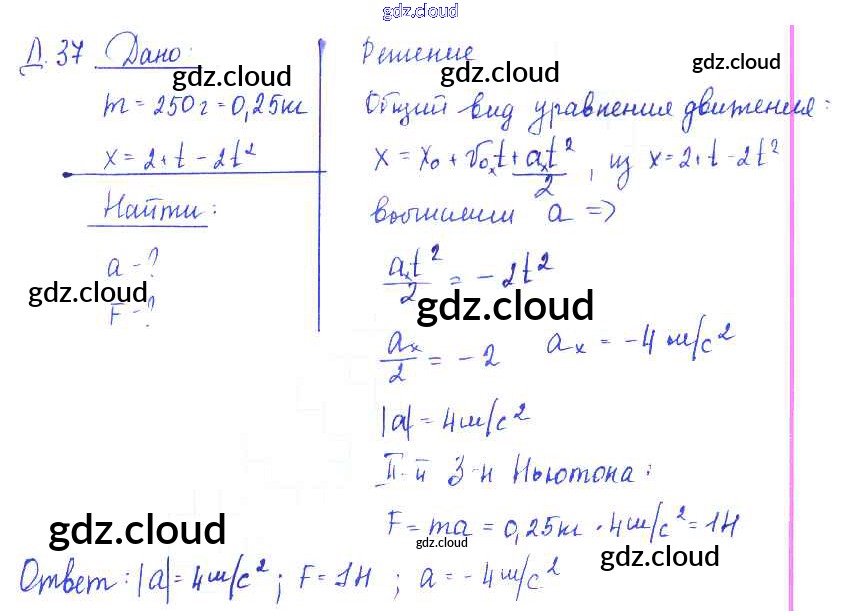 gdz.cloud
Д. 37 Дано:
gdz.cloud
m = 250 г = 0,25 кг
x = 2 + t - 2t²
Найти:
a - ?
gdz.cloud
F - ?
Решение
gdz.cloud
gdz.cloud
Общий вид уравнения движения:
gdz.cloud
x = x₀ + v₀ₓt + aₓt²/2, из x = 2 + t - 2t²
a =>
aₓt²/2 = - 2t²
gdz.cloud
aₓ/2 = - 2 aₓ = - 4 м/с²
|a| = 4 м/с²
II-й З-н Ньютона:
F = ma = 0,25 кг · 4 м/с² = 1 Н
gdz.cloud
gdz.cloud
gdz.cloud
Ответ: |a| = 4 м/с²; F = 1 Н; a = - 4 м/с²